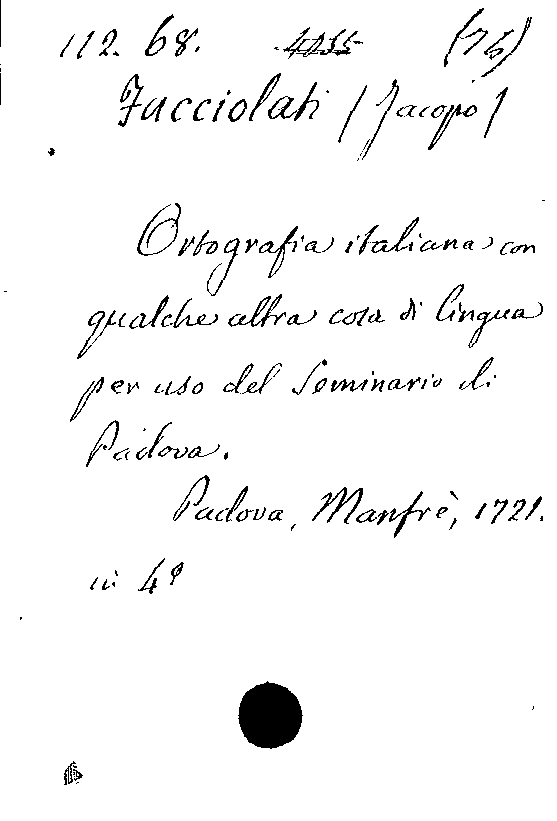 112. 68. 4255 (76)
Facciolati (Jacopo)
Ortografia italiana con
qualche altra cosa di lingua
per uso del Seminario di
Padova.
Padova, Manfrè, 1721.
in 4º